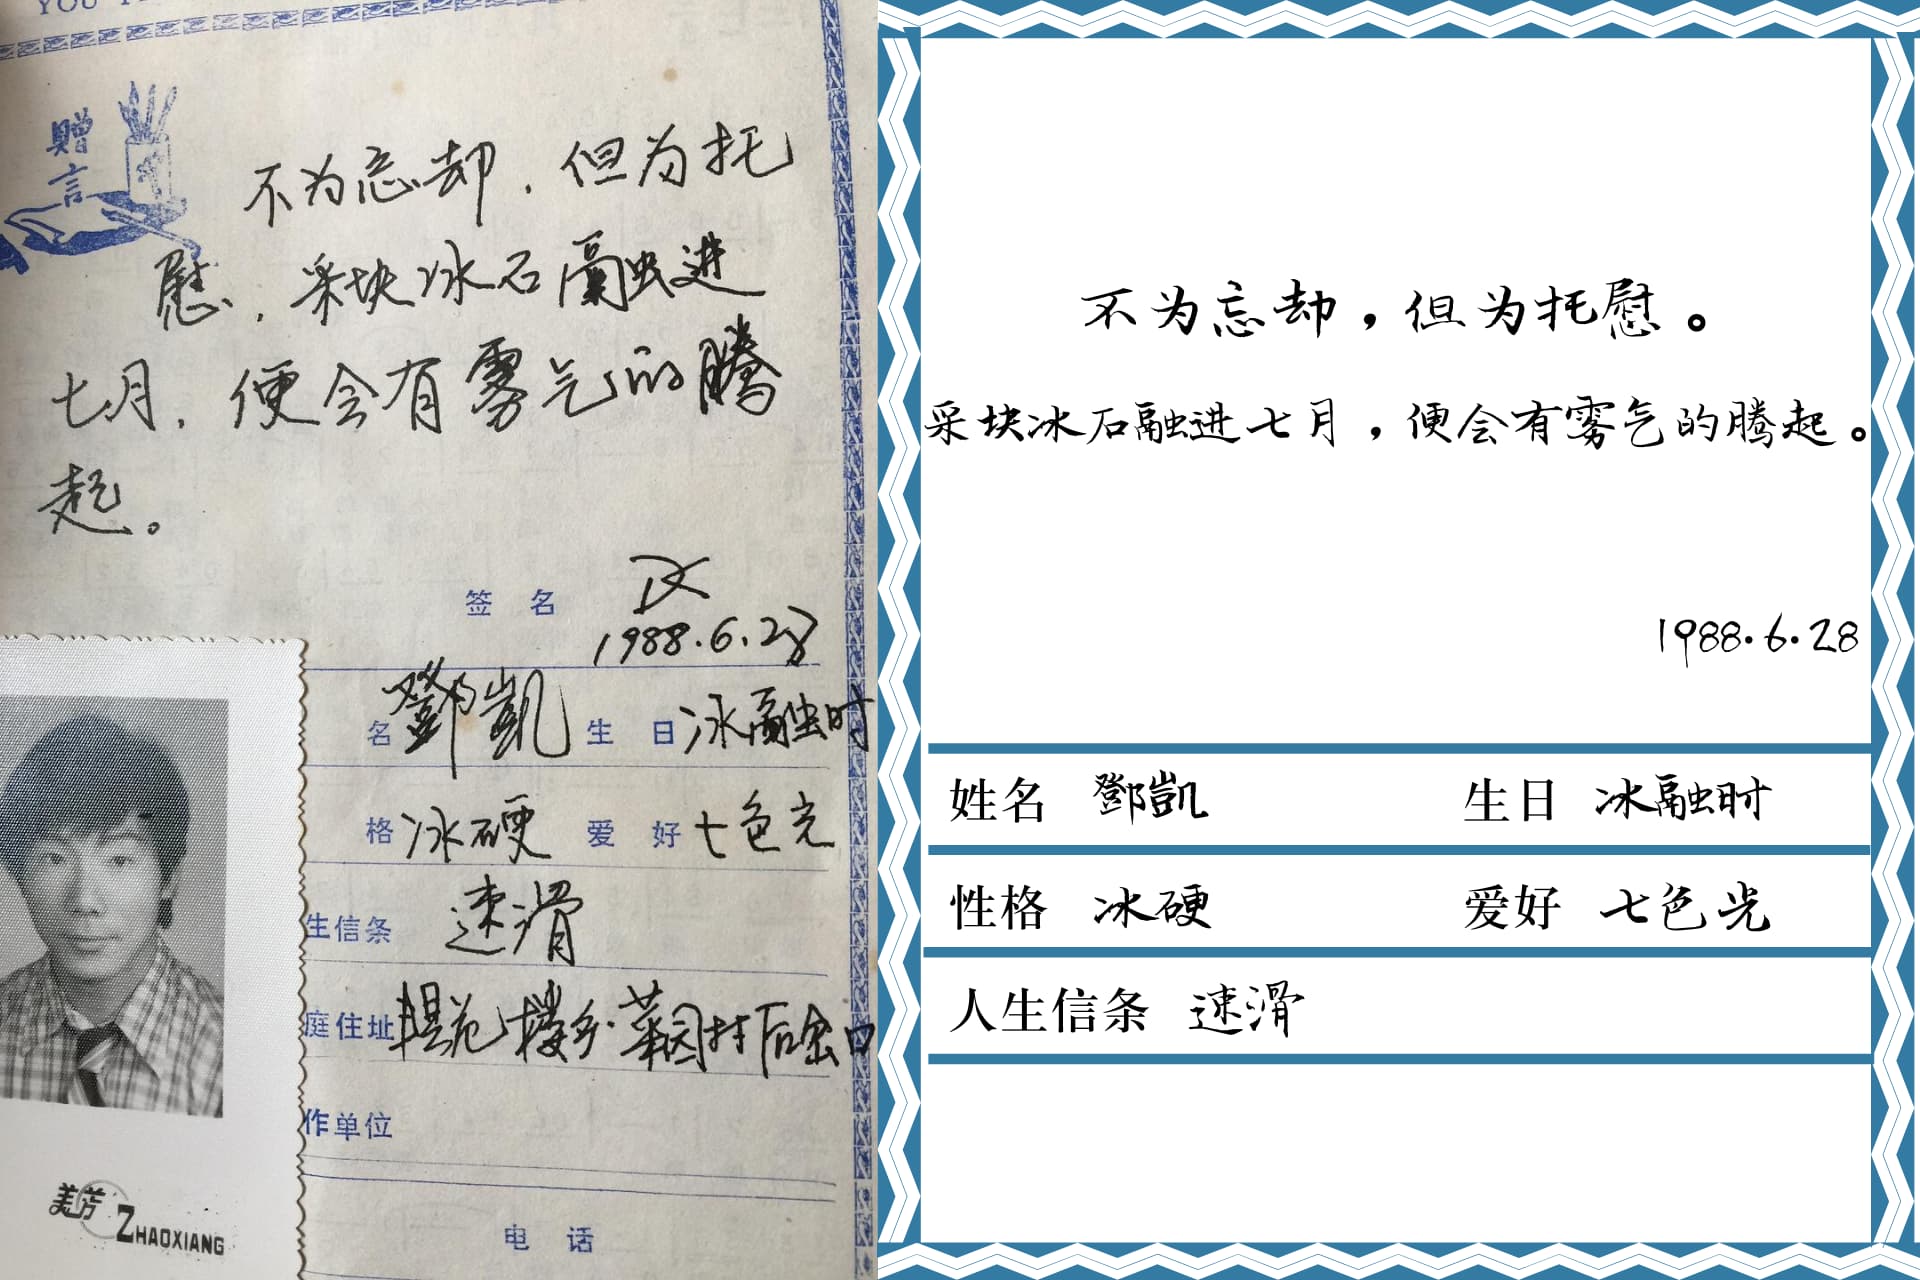 赠言
不为忘却，但为托
慰，采块冰石融进
七月，便会有雾气的腾
起。
签名
1988.6.28
名 鄧凱 生日 冰融时
格 冰硬 爱好 七色光
生信条 速滑
庭住址 菜园村后
作单位
电话
美芳 ZHAOXIANG
不为忘却，但为托慰。
采块冰石融进七月，便会有雾气的腾起。
1988.6.28
姓名 鄧凱 生日 冰融时
性格 冰硬 爱好 七色光
人生信条 速滑